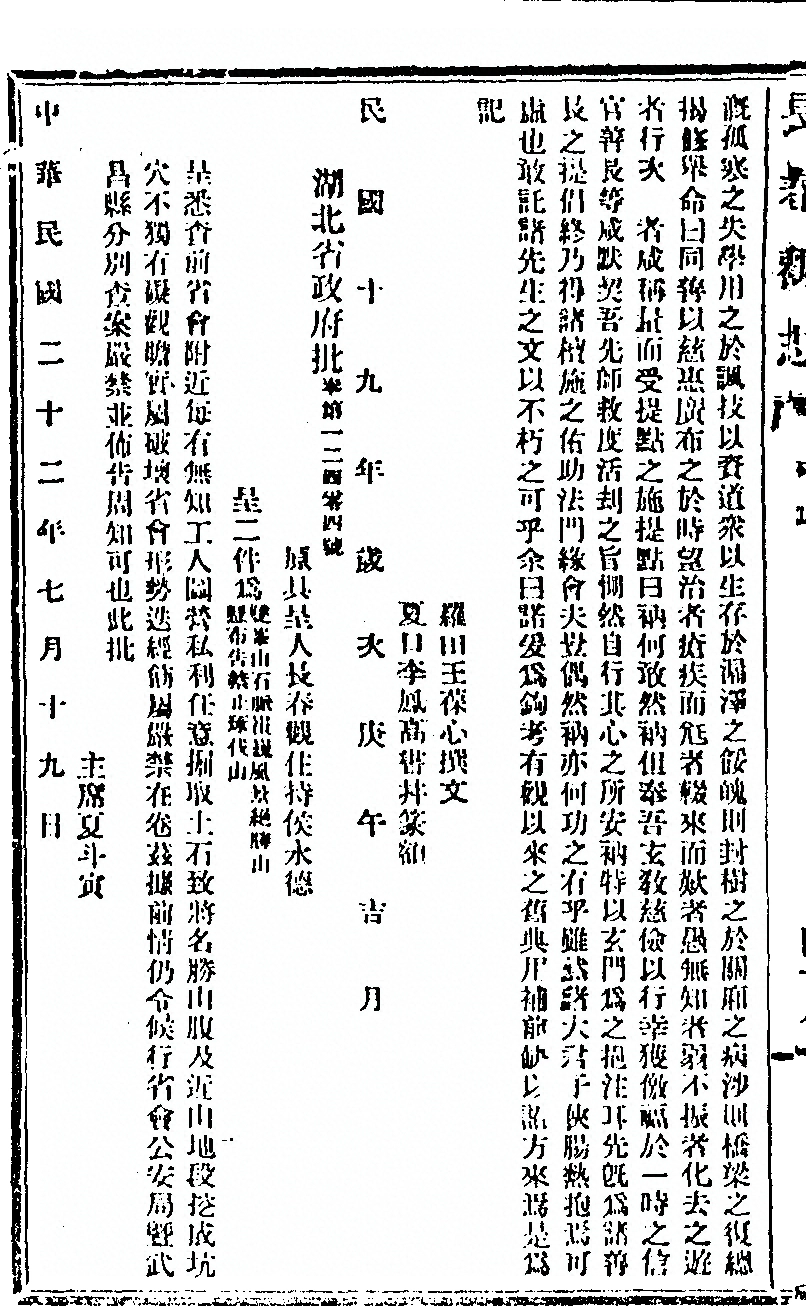 長春觀志
溉孤寒之失學用之於諷技以資道衆以生存於漏澤之餒魄則封樹之於關廂之病涉則橋梁之復總
揭條舉命曰同善以慈惠廣布之於時望治者瘡疾而尫者輟來而歟者愚無知者弱不振者化去之遊
者行次 者咸稱量而受提點之施提點曰衲何敢然衲但奉吾玄教慈儉以行幸獲儌福於一時之信
官善長等咸默契吾先師救度活刦之旨惻然自行其心之所安衲特以玄門爲之挹注耳先旣爲諸善
長之提倡終乃得諸檀施之佑助法門緣會夫豈偶然衲亦何功之有乎雖然諸大君子俠腸熱抱烏可
虛也敢託諸先生之文以不朽之可乎余曰諾爰爲鉤考有觀以來之舊典用補前缺以詔方來焉是爲
記
羅田王葆心撰文
夏口李鳳高書幷篆額
民國十九年歲次庚午吉月
湖北省政府批 第一二四零四號
原具呈人長春觀住持侯永德
呈二件爲雙峯山石脈 風景絕勝 布告禁止 伐山
呈悉查前省會附近每有無知工人圖營私利任意掘取土石致將名勝山腹及近山地段挖成坑
穴不獨有礙觀瞻實屬破壞省會形勢迭經飭屬嚴禁在卷茲據前情仍令候行省會公安局曁武
昌縣分別查案嚴禁並佈告周知可也此批
主席夏斗寅
中華民國二十二年七月十九日